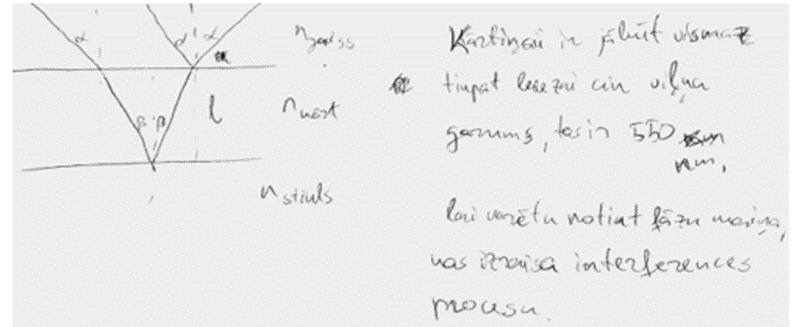 α α α
n gaiss
β β l
n kārt
n stikls
Kārtiņai ir jābūt vismaz
tikpat biezai cik viļņa
garums, tas ir 550
nm,
lai varētu notikt fāzu maiņa,
kas izraisa interferences
procesu.